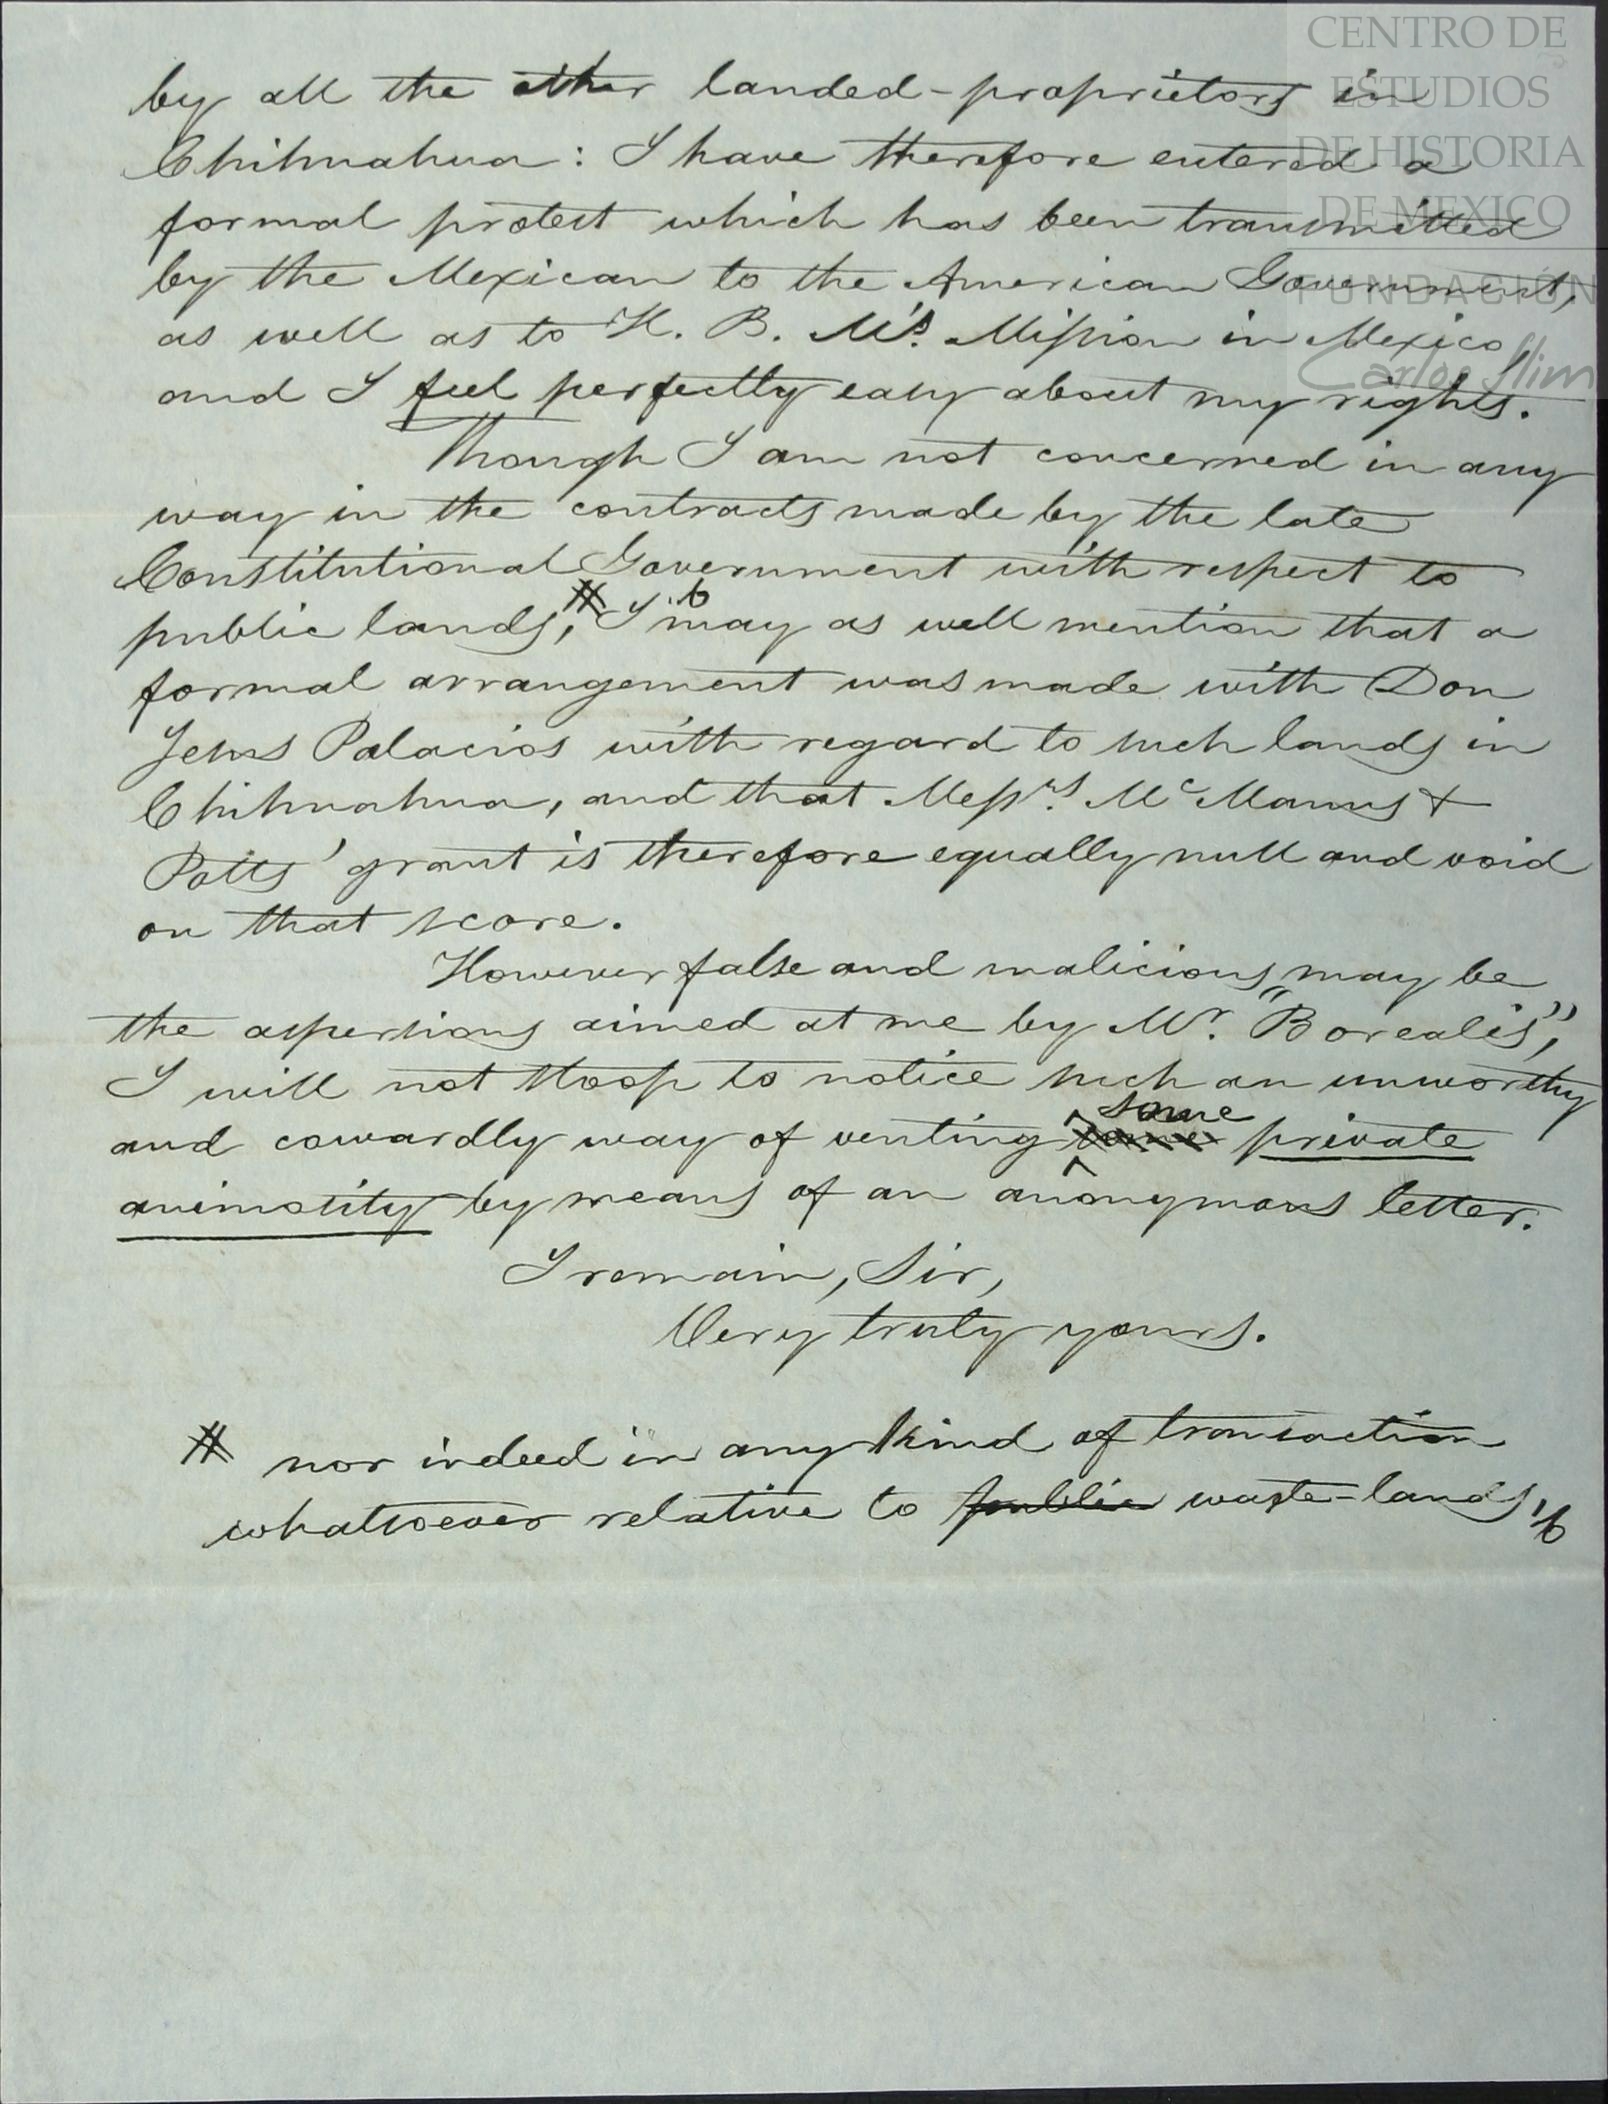 CENTRO DE
ESTUDIOS
DE HISTORIA
DE MEXICO
FUNDACIÓN
Carlos Slim
by all the other landed-proprietors in
Chihuahua: I have therefore entered a
formal protest which has been transmitted
by the Mexican to the American Government,
as well as to H. B. M's. Mission in Mexico,
and I feel perfectly easy about my rights.
Though I am not concerned in any
way in the contracts made by the late
Constitutional Government with respect to
public lands, # I may as well mention that a
formal arrangement was made with Don
Jesus Palacios with regard to such lands in
Chihuahua, and that Messrs. McManus &
Potts' grant is therefore equally null and void
on that score.
However false and malicious may be
the aspersions aimed at me by Mr. "Borealis",
I will not stoop to notice such an unworthy
and cowardly way of venting some private
animosity by means of an anonymous letter.
I remain, Sir,
Very truly yours.
# nor indeed in any kind of transaction
whatsoever relative to public waste-lands,